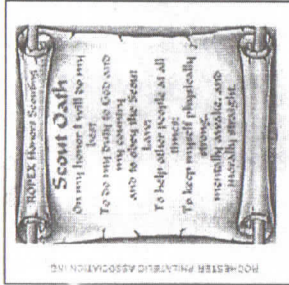 ROPEX Honors Scouting
Scout Oath
On my honor I will do my
best
To do my duty to God and
my country
and to obey the Scout
Law;
To help other people at all
times;
To keep myself physically
strong,
mentally awake, and
morally straight.
ROCHESTER PHILATELIC ASSOCIATION INC